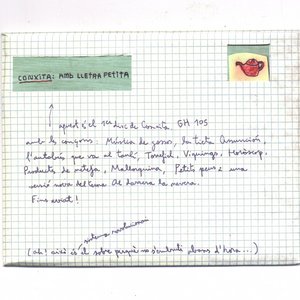 CONXITA: AMB LLETRA PETITA
aquest és el 1er disc de Conxita GH 105
amb les cançons: Música de gossos, La tieta Assumpció,
l'autobús que va al Vikings, Horòscop,
Productes de neteja, Mallorquina, Petits peus i una
versió nova del tema Al darrera la nevera.
Fins aviat!
sistema revolucionari
(ah! això és el sobre perquè no s'embruti abans d'hora...)